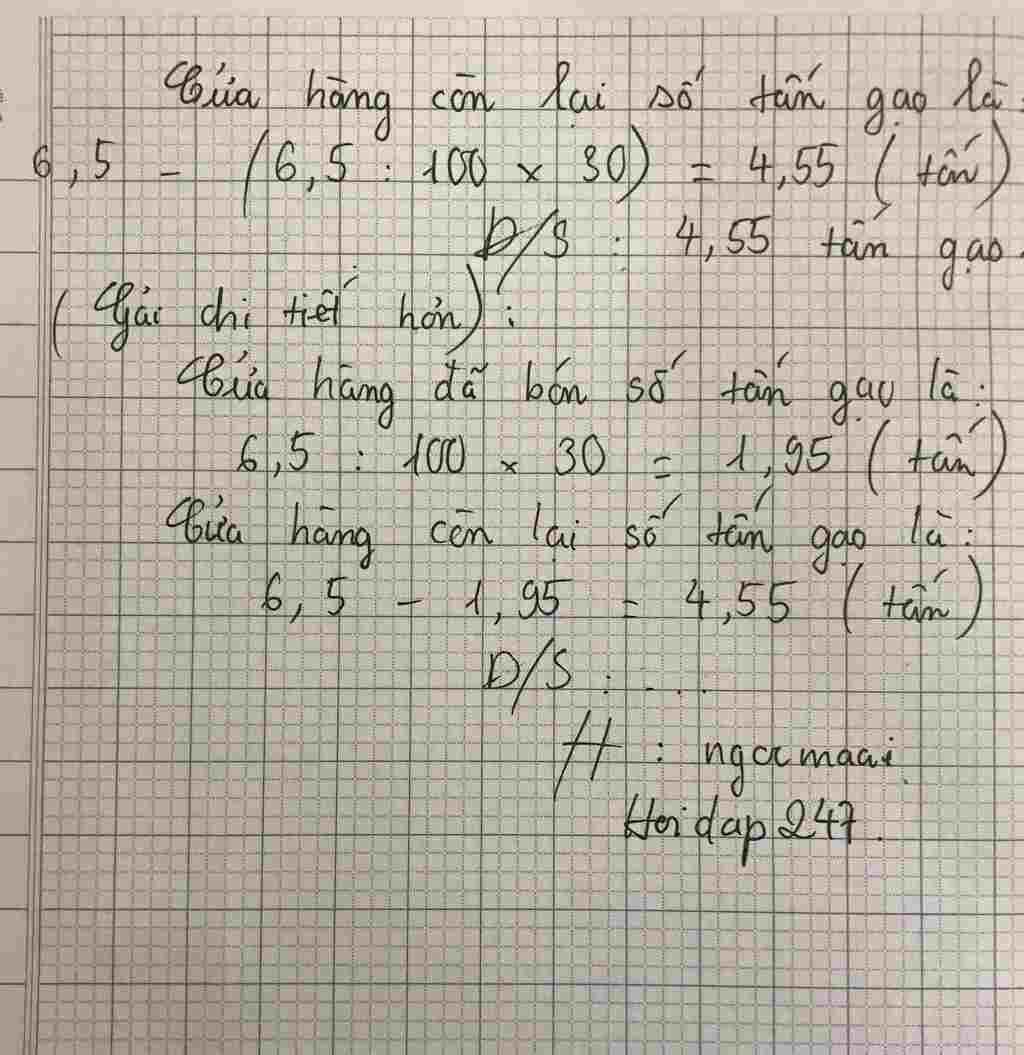 Cửa hàng còn lại số tấn gạo là:
6,5 - (6,5 : 100 x 30) = 4,55 (tấn)
Đ/S : 4,55 tấn gạo.
(Giải chi tiết hơn):
Cửa hàng đã bán số tấn gạo là:
6,5 : 100 x 30 = 1,95 (tấn)
Cửa hàng còn lại số tấn gạo là:
6,5 - 1,95 = 4,55 (tấn)
Đ/S : ....
# : ngocmaai
Hoidap247.